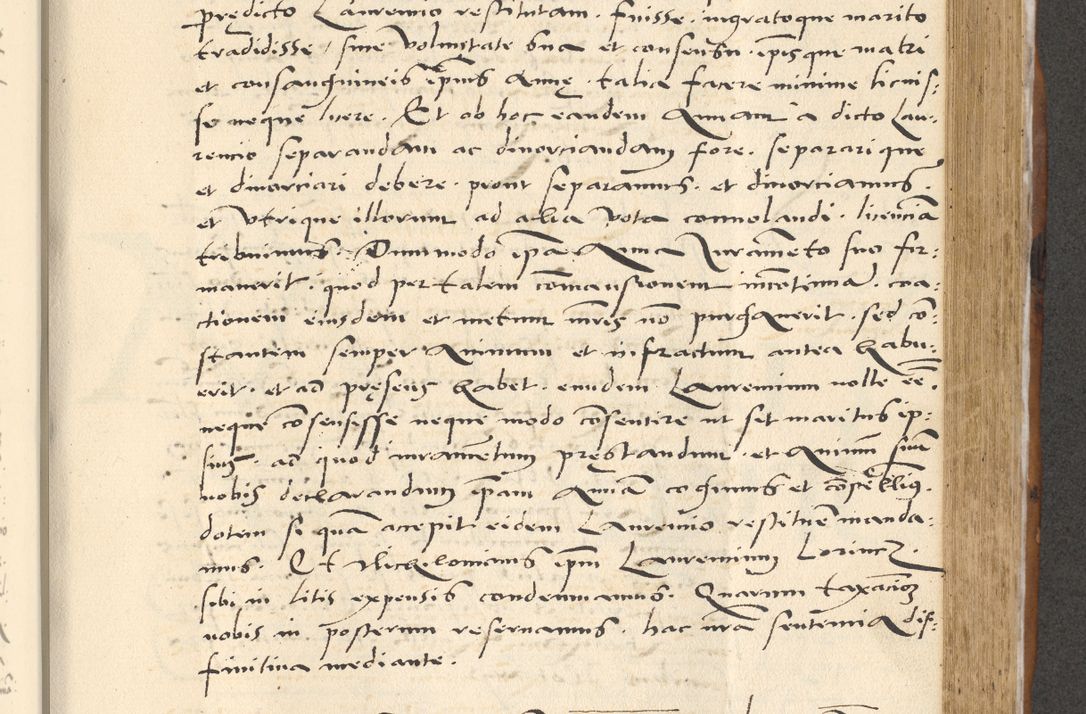 prędicto Laurencio restitutam . fuisse . ingratoque marito
tradidisse / sine voluntate sua et consensu . ipisque matri
et consanguineis ip̄ius Annę . talia facere minime licuis⸗
se neque licere . Et ob hoc eandem Annam a dicto Lau⸗
rencio separandam ac divorciandam fore . separarique
et divorciari debere . prout separamus . et divorciamus .
et vtrique illorum ad alia vota convolandi . licenciā
tribuimus . Dummodo ip̄a Anna Iuramēto suo fir⸗
maverit . quod per talem cōmansionem . coa⸗
ctionem eiusdem et metum mr̄is nō purgaverit . sed cō⸗
stantem semper Animum et infractum antea habu⸗
erit . et ad pręsens habet . eundem Laurencium nolle eē .
neque cōsensisse neque modo cōsentire ut sit maritus ip⸗
sius . ad quod iuramētum pręstandum . et Animū suū
nobis declarandum ip̄am Annā cogimus et .
dotem si quā accepit eidem Laurencio restituē manda⸗
mus . Et Nichilominus ip̄m Laurencium Lorincz .
sibi in litis expensis condemnamus . Quarum taxaciōe
nobis in posterum reservamus . hac nr̄a sententia dif⸗
finitiva mediante .